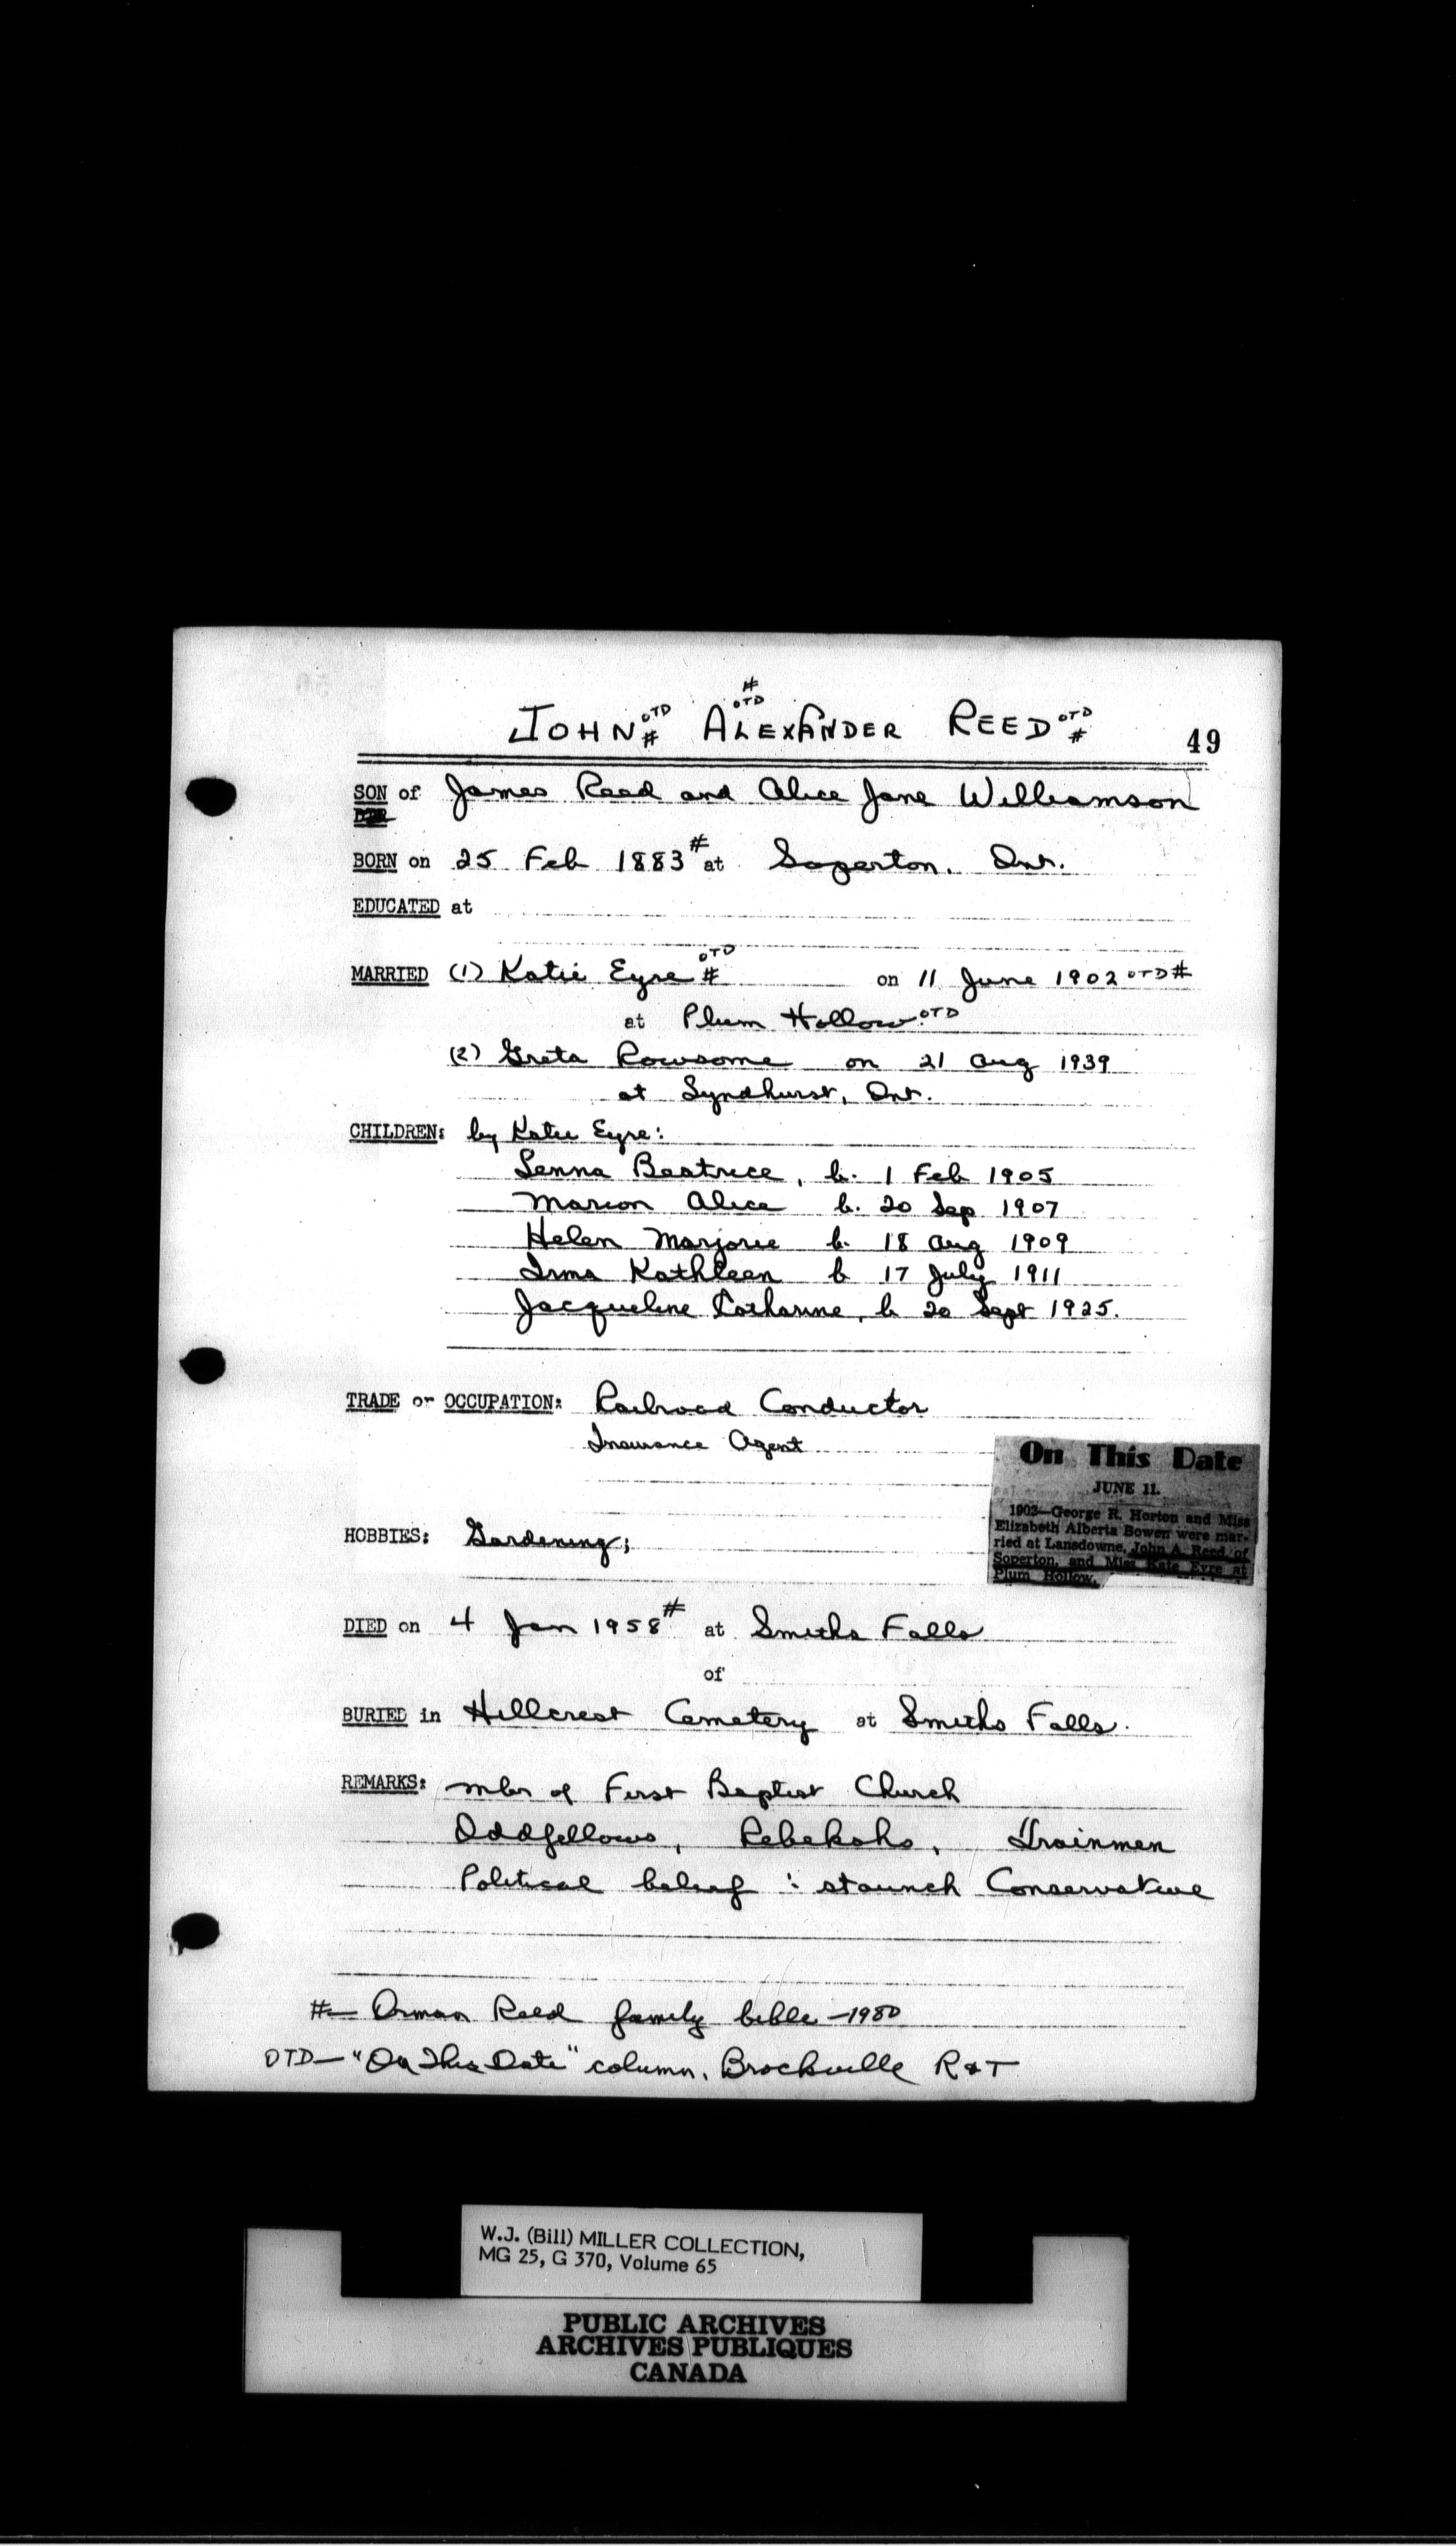 #
OTD OTD OTD
JOHN # ALEXANDER REED # 49
SON of James Reed and Alice Jane Williamson
DTR
BORN on 25 Feb 1883 # at Soperton, Ont.
EDUCATED at
OTD
MARRIED (1) Katie Eyre # on 11 June 1902 OTD #
at Plum Hollow OTD
(2) Greta Rowsome on 21 Aug 1939
at Lyndhurst, Ont.
CHILDREN: by Katie Eyre:
Lenna Beatrice, b. 1 Feb 1905
Marion Alice b. 20 Sep 1907
Helen Marjorie b. 18 Aug 1909
Irma Kathleen b 17 July 1911
Jacqueline Catharine, b 20 Sept 1925.
TRADE or OCCUPATION: Railroad Conductor
Insurance Agent
On This Date
JUNE 11.
1902—George R. Horton and Miss
Elizabeth Alberta Bowen were mar-
ried at Lansdowne, John A. Reed of
Soperton, and Miss Kate Eyre at
Plum Hollow.
HOBBIES: Gardening;
DIED on 4 Jan 1958 # at Smiths Falls
of
BURIED in Hillcrest Cemetery at Smiths Falls.
REMARKS: mbr of First Baptist Church
Oddfellows, Rebekahs, Trainmen
Political belief : staunch Conservative
#— Orman Reed family bible —1980
OTD — "On This Date" column, Brockville R & T
W.J. (Bill) MILLER COLLECTION,
MG 25, G 370, Volume 65
PUBLIC ARCHIVES
ARCHIVES PUBLIQUES
CANADA